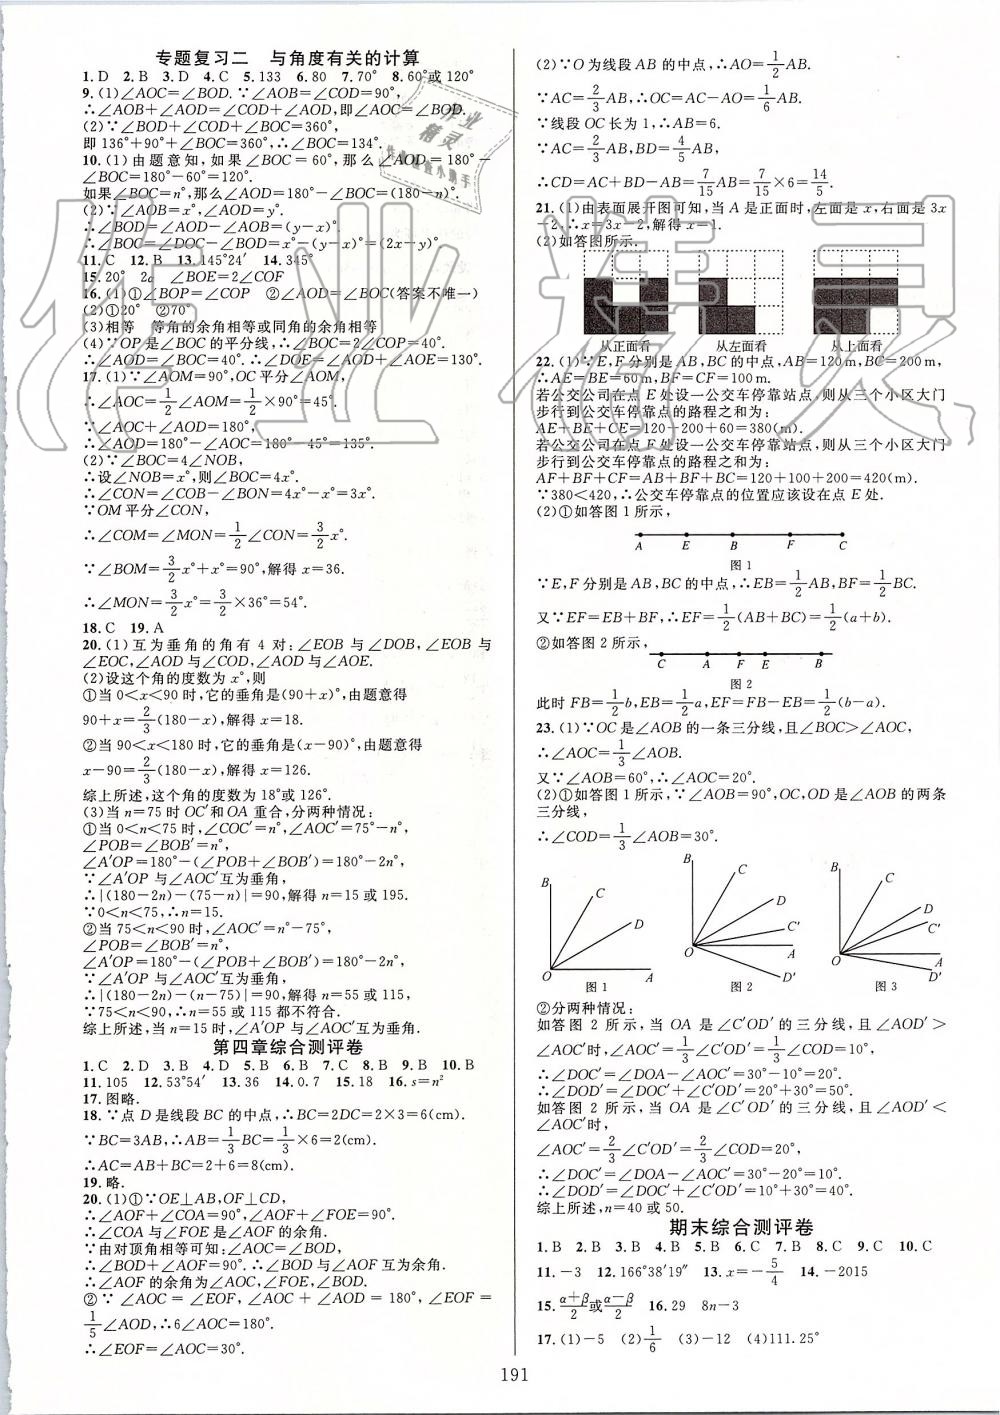 专题复习二　与角度有关的计算
1.D 2.B 3.D 4.C 5.133 6.80 7.70° 8.60°或120°
9.(1)∠AOC=∠BOD.∵∠AOB=∠COD=90°,
∴∠AOB+∠AOD=∠COD+∠AOD,即∠AOC=∠BOD.
(2)∵∠BOD+∠COD+∠BOC=360°,
即136°+90°+∠BOC=360°,∴∠BOC=134°.
10.(1)由题意知,如果∠BOC=60°,那么∠AOD=180°-
∠BOC=180°-60°=120°.
如果∠BOC=n°,那么∠AOD=180°-∠BOC=(180-n)°.
(2)∵∠AOB=x°,∠AOD=y°.
∴∠BOD=∠AOD-∠AOB=(y-x)°.
∴∠BOC=∠DOC-∠BOD=x°-(y-x)°=(2x-y)°.
11.C 12.B 13.145°24′ 14.345°
15.20° 2α ∠BOE=2∠COF
16.(1)①∠BOP=∠COP ②∠AOD=∠BOC(答案不唯一)
(2)①20° ②70°
(3)相等 等角的余角相等或同角的余角相等
(4)∵OP是∠BOC的平分线,∴∠BOC=2∠COP=40°.
∴∠AOD=∠BOC=40°.∴∠DOE=∠AOD+∠AOE=130°.
17.(1)∵∠AOM=90°,OC平分∠AOM,
∴∠AOC=1/2∠AOM=1/2×90°=45°.
∵∠AOC+∠AOD=180°,
∴∠AOD=180°-∠AOC=180°-45°=135°.
(2)∵∠BOC=4∠NOB,
∴设∠NOB=x°,则∠BOC=4x°.
∴∠CON=∠COB-∠BON=4x°-x°=3x°.
∵OM平分∠CON,
∴∠COM=∠MON=1/2∠CON=3/2x°.
∵∠BOM=3/2x°+x°=90°,解得x=36.
∴∠MON=3/2x°=3/2×36°=54°.
18.C 19.A
20.(1)互为垂角的角有4对:∠EOB与∠DOB,∠EOB与
∠EOC,∠AOD与∠COD,∠AOD与∠AOE.
(2)设这个角的度数为x°,则
①当0<x<90时,它的垂角是(90+x)°,由题意得
90+x=2/3(180-x),解得x=18.
②当90<x<180时,它的垂角是(x-90)°,由题意得
x-90=2/3(180-x),解得x=126.
综上所述,这个角的度数为18°或126°.
(3)当n=75时OC′和OA重合,分两种情况:
①当0<n<75时,∠COC′=n°,∠AOC′=75°-n°,
∠POB=∠BOB′=n°,
∠A′OP=180°-(∠POB+∠BOB′)=180°-2n°.
∵∠A′OP与∠AOC′互为垂角,
∴|(180-2n)-(75-n)|=90,解得n=15或195.
∵0<n<75,∴n=15.
②当75<n<90时,∠AOC′=n°-75°,
∠POB=∠BOB′=n°,
∠A′OP=180°-(∠POB+∠BOB′)=180°-2n°.
∵∠A′OP与∠AOC′互为垂角,
∴|(180-2n)-(n-75)|=90,解得n=55或115,
∵75<n<90,∴n=55或115都不符合.
综上所述,当n=15时,∠A′OP与∠AOC′互为垂角.
第四章综合测评卷
1.C 2.D 3.B 4.D 5.B 6.B 7.C 8.B 9.B 10.B
11.105 12.53°54′ 13.36 14.0.7 15.18 16.s=n²
17.图略.
18.∵点D是线段BC的中点,∴BC=2DC=2×3=6(cm).
∵BC=3AB,∴AB=1/3BC=1/3×6=2(cm).
∴AC=AB+BC=2+6=8(cm).
19.略.
20.(1)①∵OE⊥AB,OF⊥CD,
∴∠AOF+∠COA=90°,∠AOF+∠FOE=90°.
∴∠COA与∠FOE是∠AOF的余角.
∵由对顶角相等可知:∠AOC=∠BOD,
∴∠BOD+∠AOF=90°.∴∠BOD与∠AOF互为余角.
∴∠AOF的余角为∠AOC,∠FOE,∠BOD.
②∵∠AOC=∠EOF,∠AOC+∠AOD=180°,∠EOF=
1/5∠AOD,∴6∠AOC=180°.
∴∠EOF=∠AOC=30°.
(2)∵O为线段AB的中点,∴AO=1/2AB.
∵AC=2/3AB,∴OC=AC-AO=1/6AB.
∵线段OC长为1,∴AB=6.
∵AC=2/3AB,BD=4/5AB,
∴CD=AC+BD-AB=7/15AB=7/15×6=14/5.
21.(1)由表面展开图可知,当A是正面时,左面是x,右面是3x
-2,∴x=3x-2,解得x=1.
(2)如答图所示.
从正面看 从左面看 从上面看
22.(1)∵E,F分别是AB,BC的中点,AB=120m,BC=200m,
∴AE=BE=60m,BF=CF=100m.
若公交公司在点E处设一公交车停靠站点,则从三个小区大门
步行到公交车停靠点的路程之和为:
AE+BE+CE=120+200+60=380(m).
若公交公司在点F处设一公交车停靠站点,则从三个小区大门
步行到公交车停靠点的路程之和为:
AF+BF+CF=AB+BF+BC=120+100+200=420(m).
∵380<420,∴公交车停靠点的位置应该设在点E处.
(2)①如答图1所示,
A E B F C
图1
∵E,F分别是AB,BC的中点,∴EB=1/2AB,BF=1/2BC.
又∵EF=EB+BF,∴EF=1/2(AB+BC)=1/2(a+b).
②如答图2所示,
C A F E B
图2
此时FB=1/2b,EB=1/2a,EF=FB-EB=1/2(b-a).
23.(1)∵OC是∠AOB的一条三分线,且∠BOC>∠AOC,
∴∠AOC=1/3∠AOB.
又∵∠AOB=60°,∴∠AOC=20°.
(2)①如答图1所示,∵∠AOB=90°,OC,OD是∠AOB的两条
三分线,
∴∠COD=1/3∠AOB=30°.
B C D O A
图1
B C D C′ O A D′
图2
B C D C′ O A D′
图3
②分两种情况:
如答图2所示,当OA是∠C′OD′的三分线,且∠AOD′>
∠AOC′时,∠AOC′=1/3∠C′OD′=1/3∠COD=10°,
∴∠DOC′=∠DOA-∠AOC′=30°-10°=20°.
∴∠DOD′=∠DOC′+∠C′OD′=20°+30°=50°.
如答图2所示,当OA是∠C′OD′的三分线,且∠AOD′<
∠AOC′时,
∠AOC′=2/3∠C′OD′=2/3∠COD=20°,
∴∠DOC′=∠DOA-∠AOC′=30°-20°=10°.
∴∠DOD′=∠DOC′+∠C′OD′=10°+30°=40°.
综上所述,n=40或50.
期末综合测评卷
1.B 2.B 3.B 4.B 5.B 6.C 7.B 8.C 9.C 10.C
11.-3 12.166°38′19″ 13.x=-5/4 14.-2015
15.(α+β)/2或(α-β)/2 16.29 8n-3
17.(1)-5 (2)1/6 (3)-12 (4)111.25°
191
作业精灵
作业
精灵